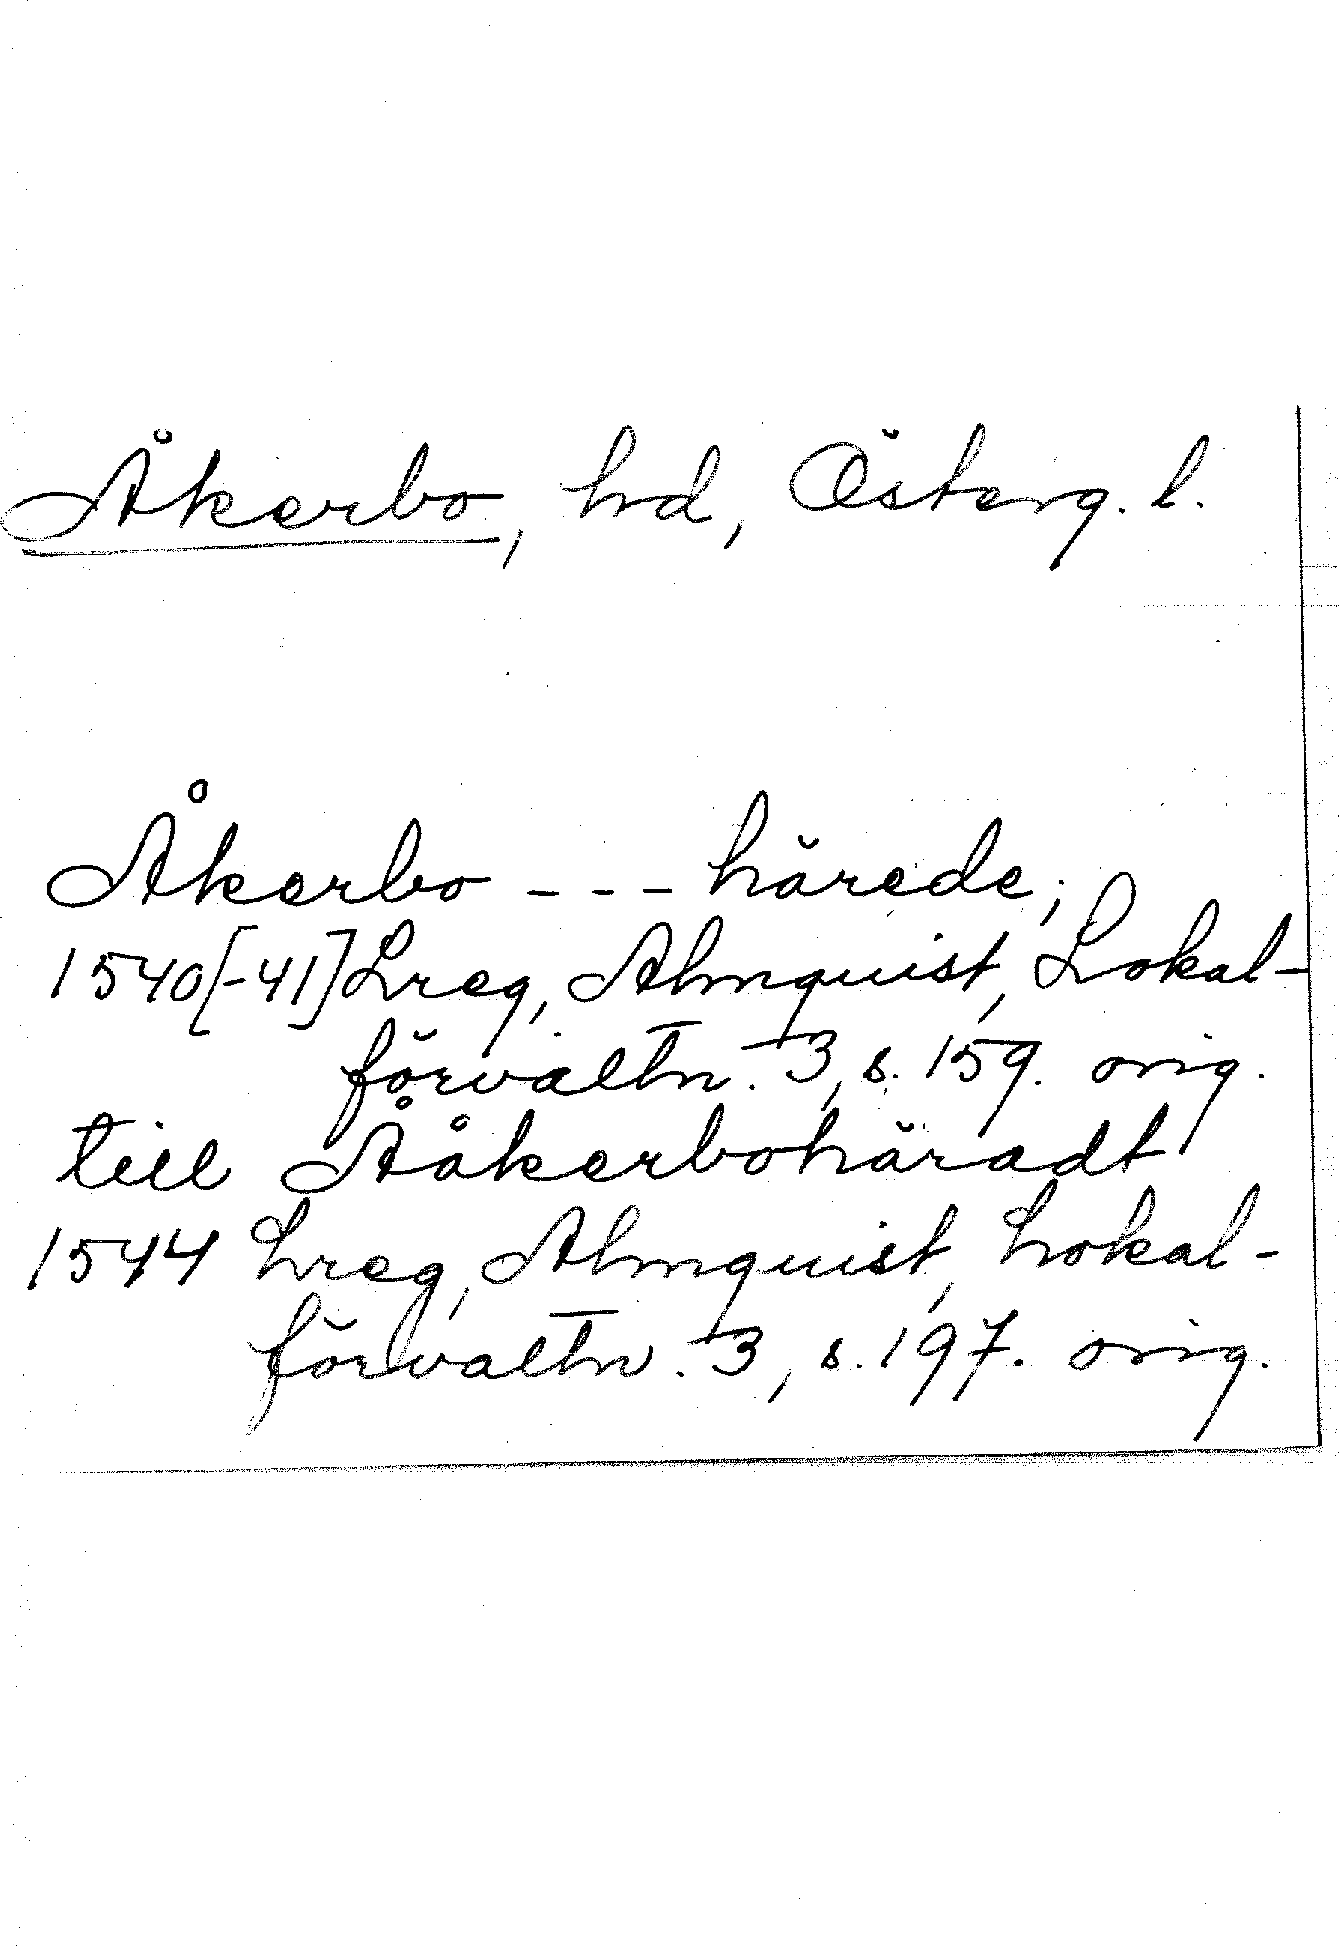 Åkerbo, hd, Österg. l.
Åkerbo --- härede;
1540[-41] Lreg, Almquist, Lokal-
förvaltn. 3, s. 159. orig.
till Ååkerbohäradt
1544 Lreg, Almquist, Lokal-
förvaltn. 3, s. 197. orig.